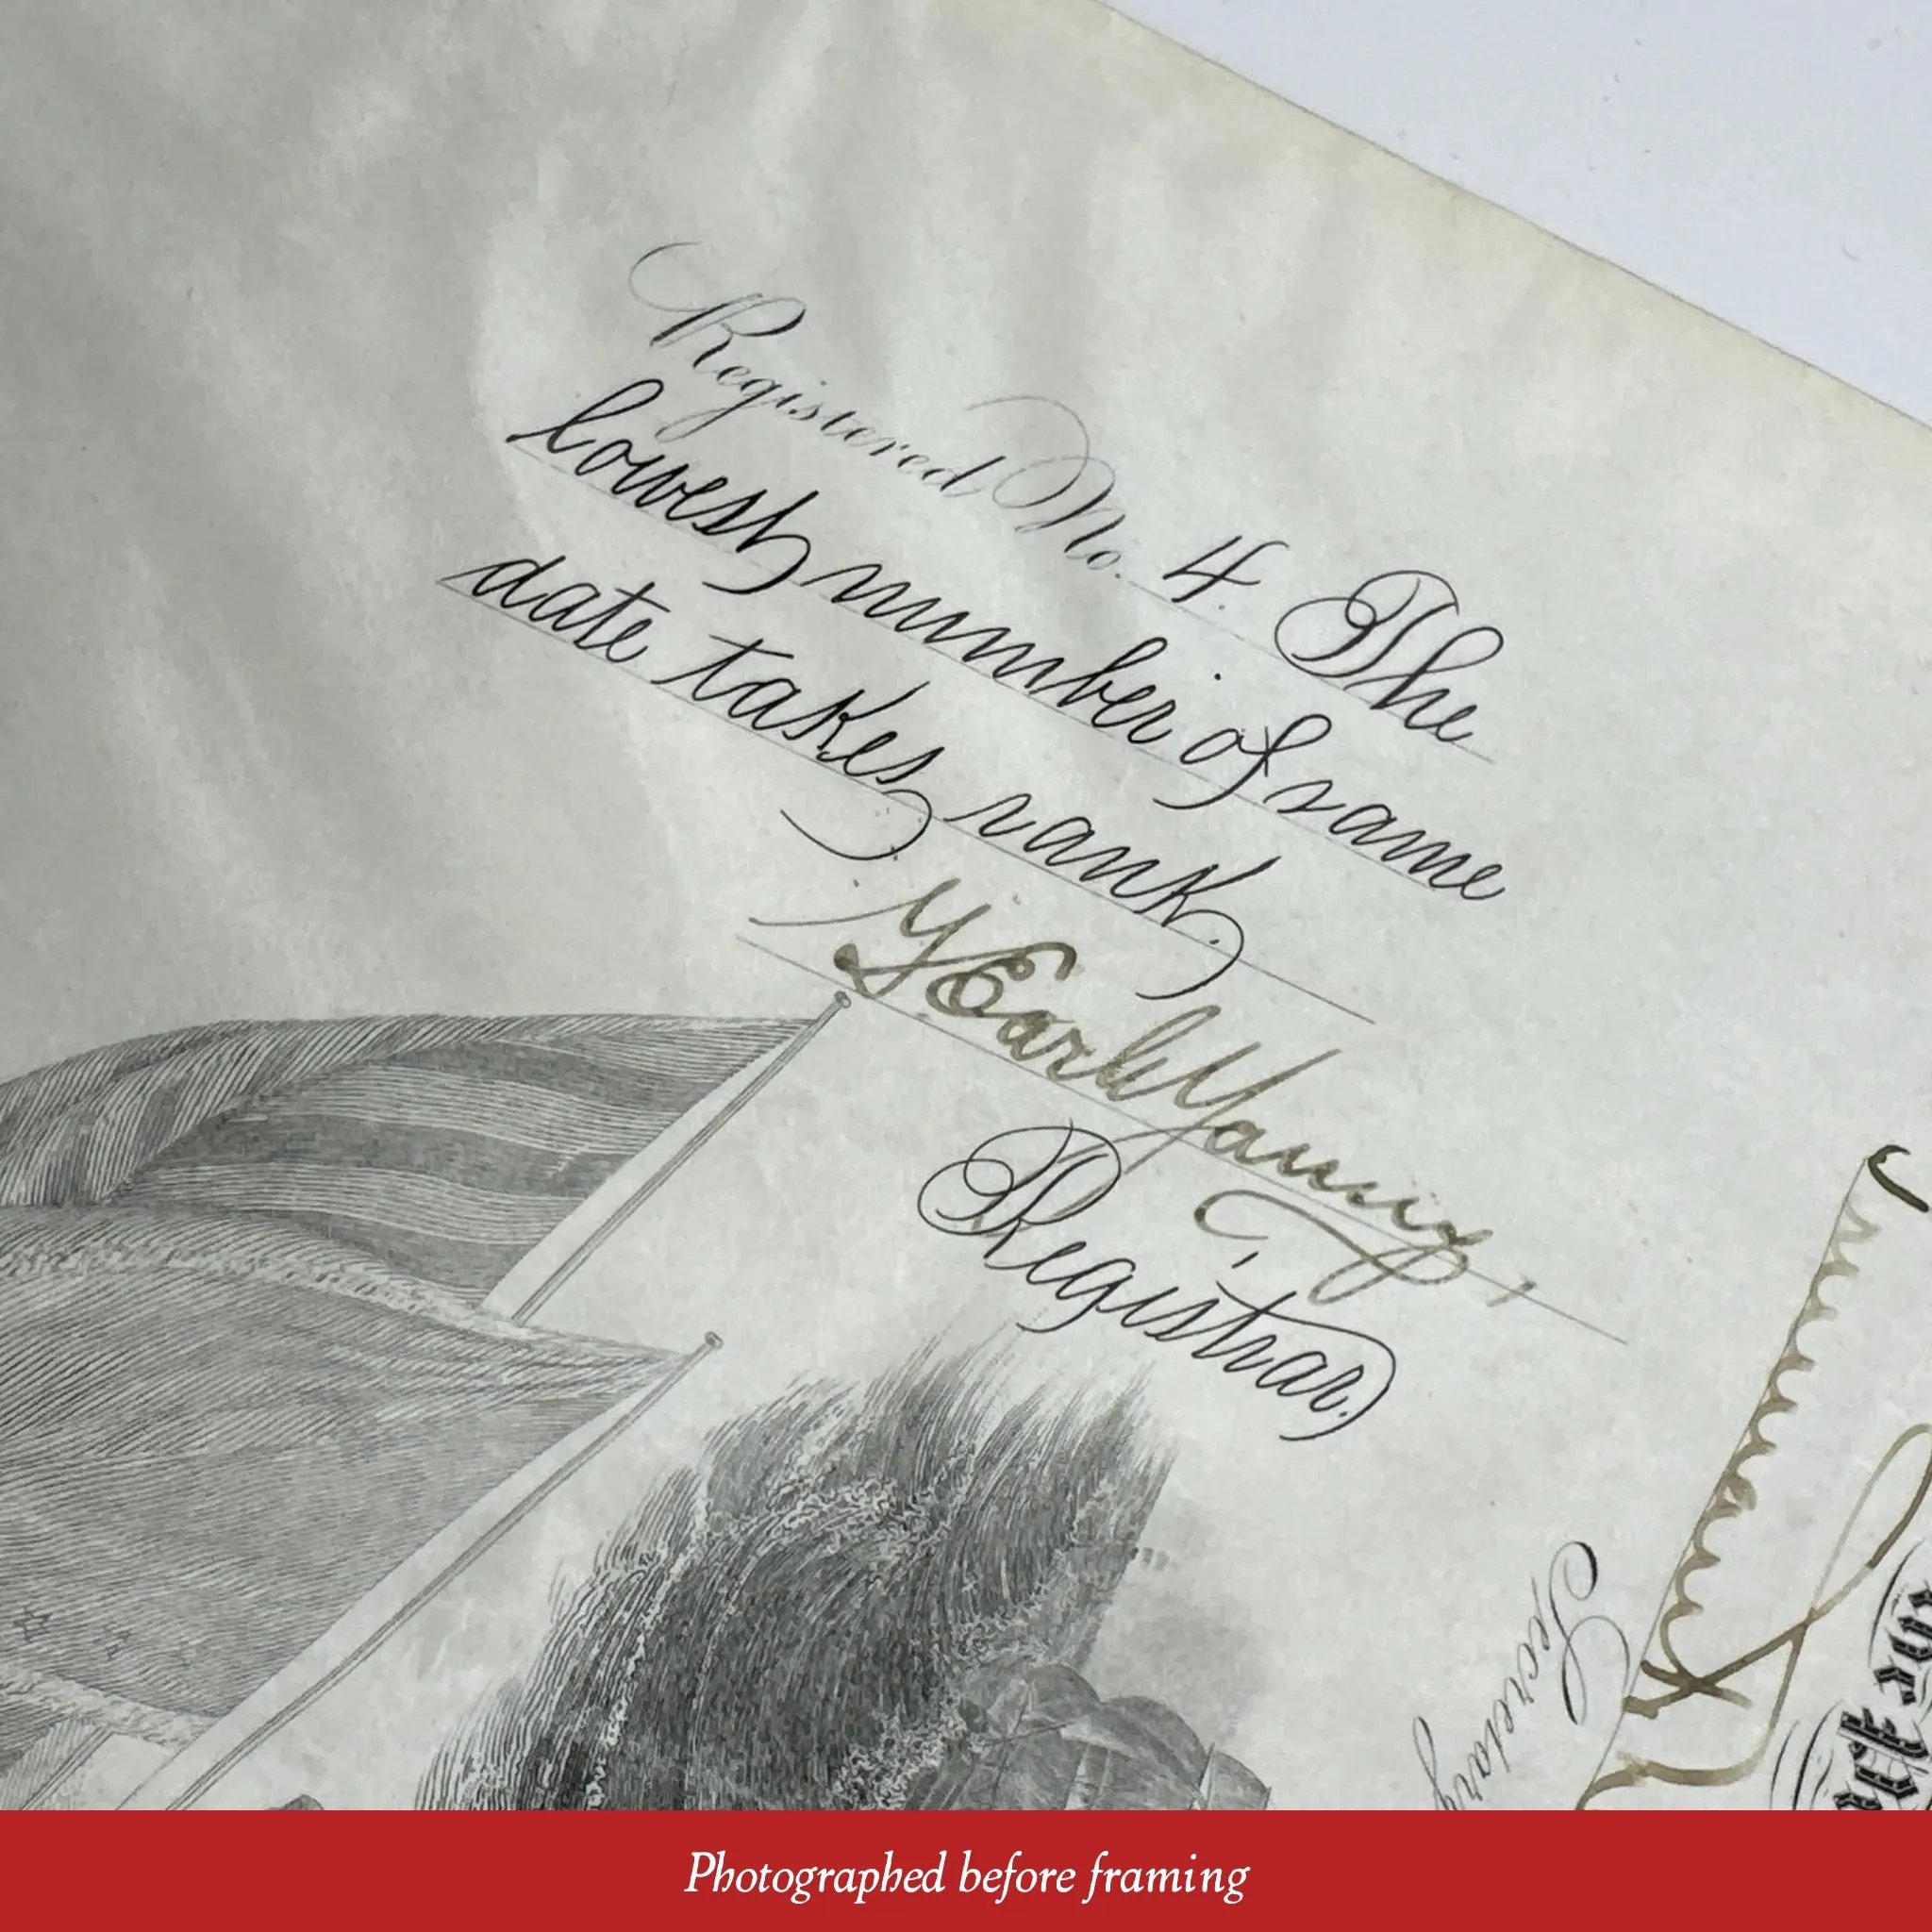 Registered No. 4. The
lowest number of same
date takes rank.
Y Earle Yancey,
Registrar.
Secretary
Photographed before framing